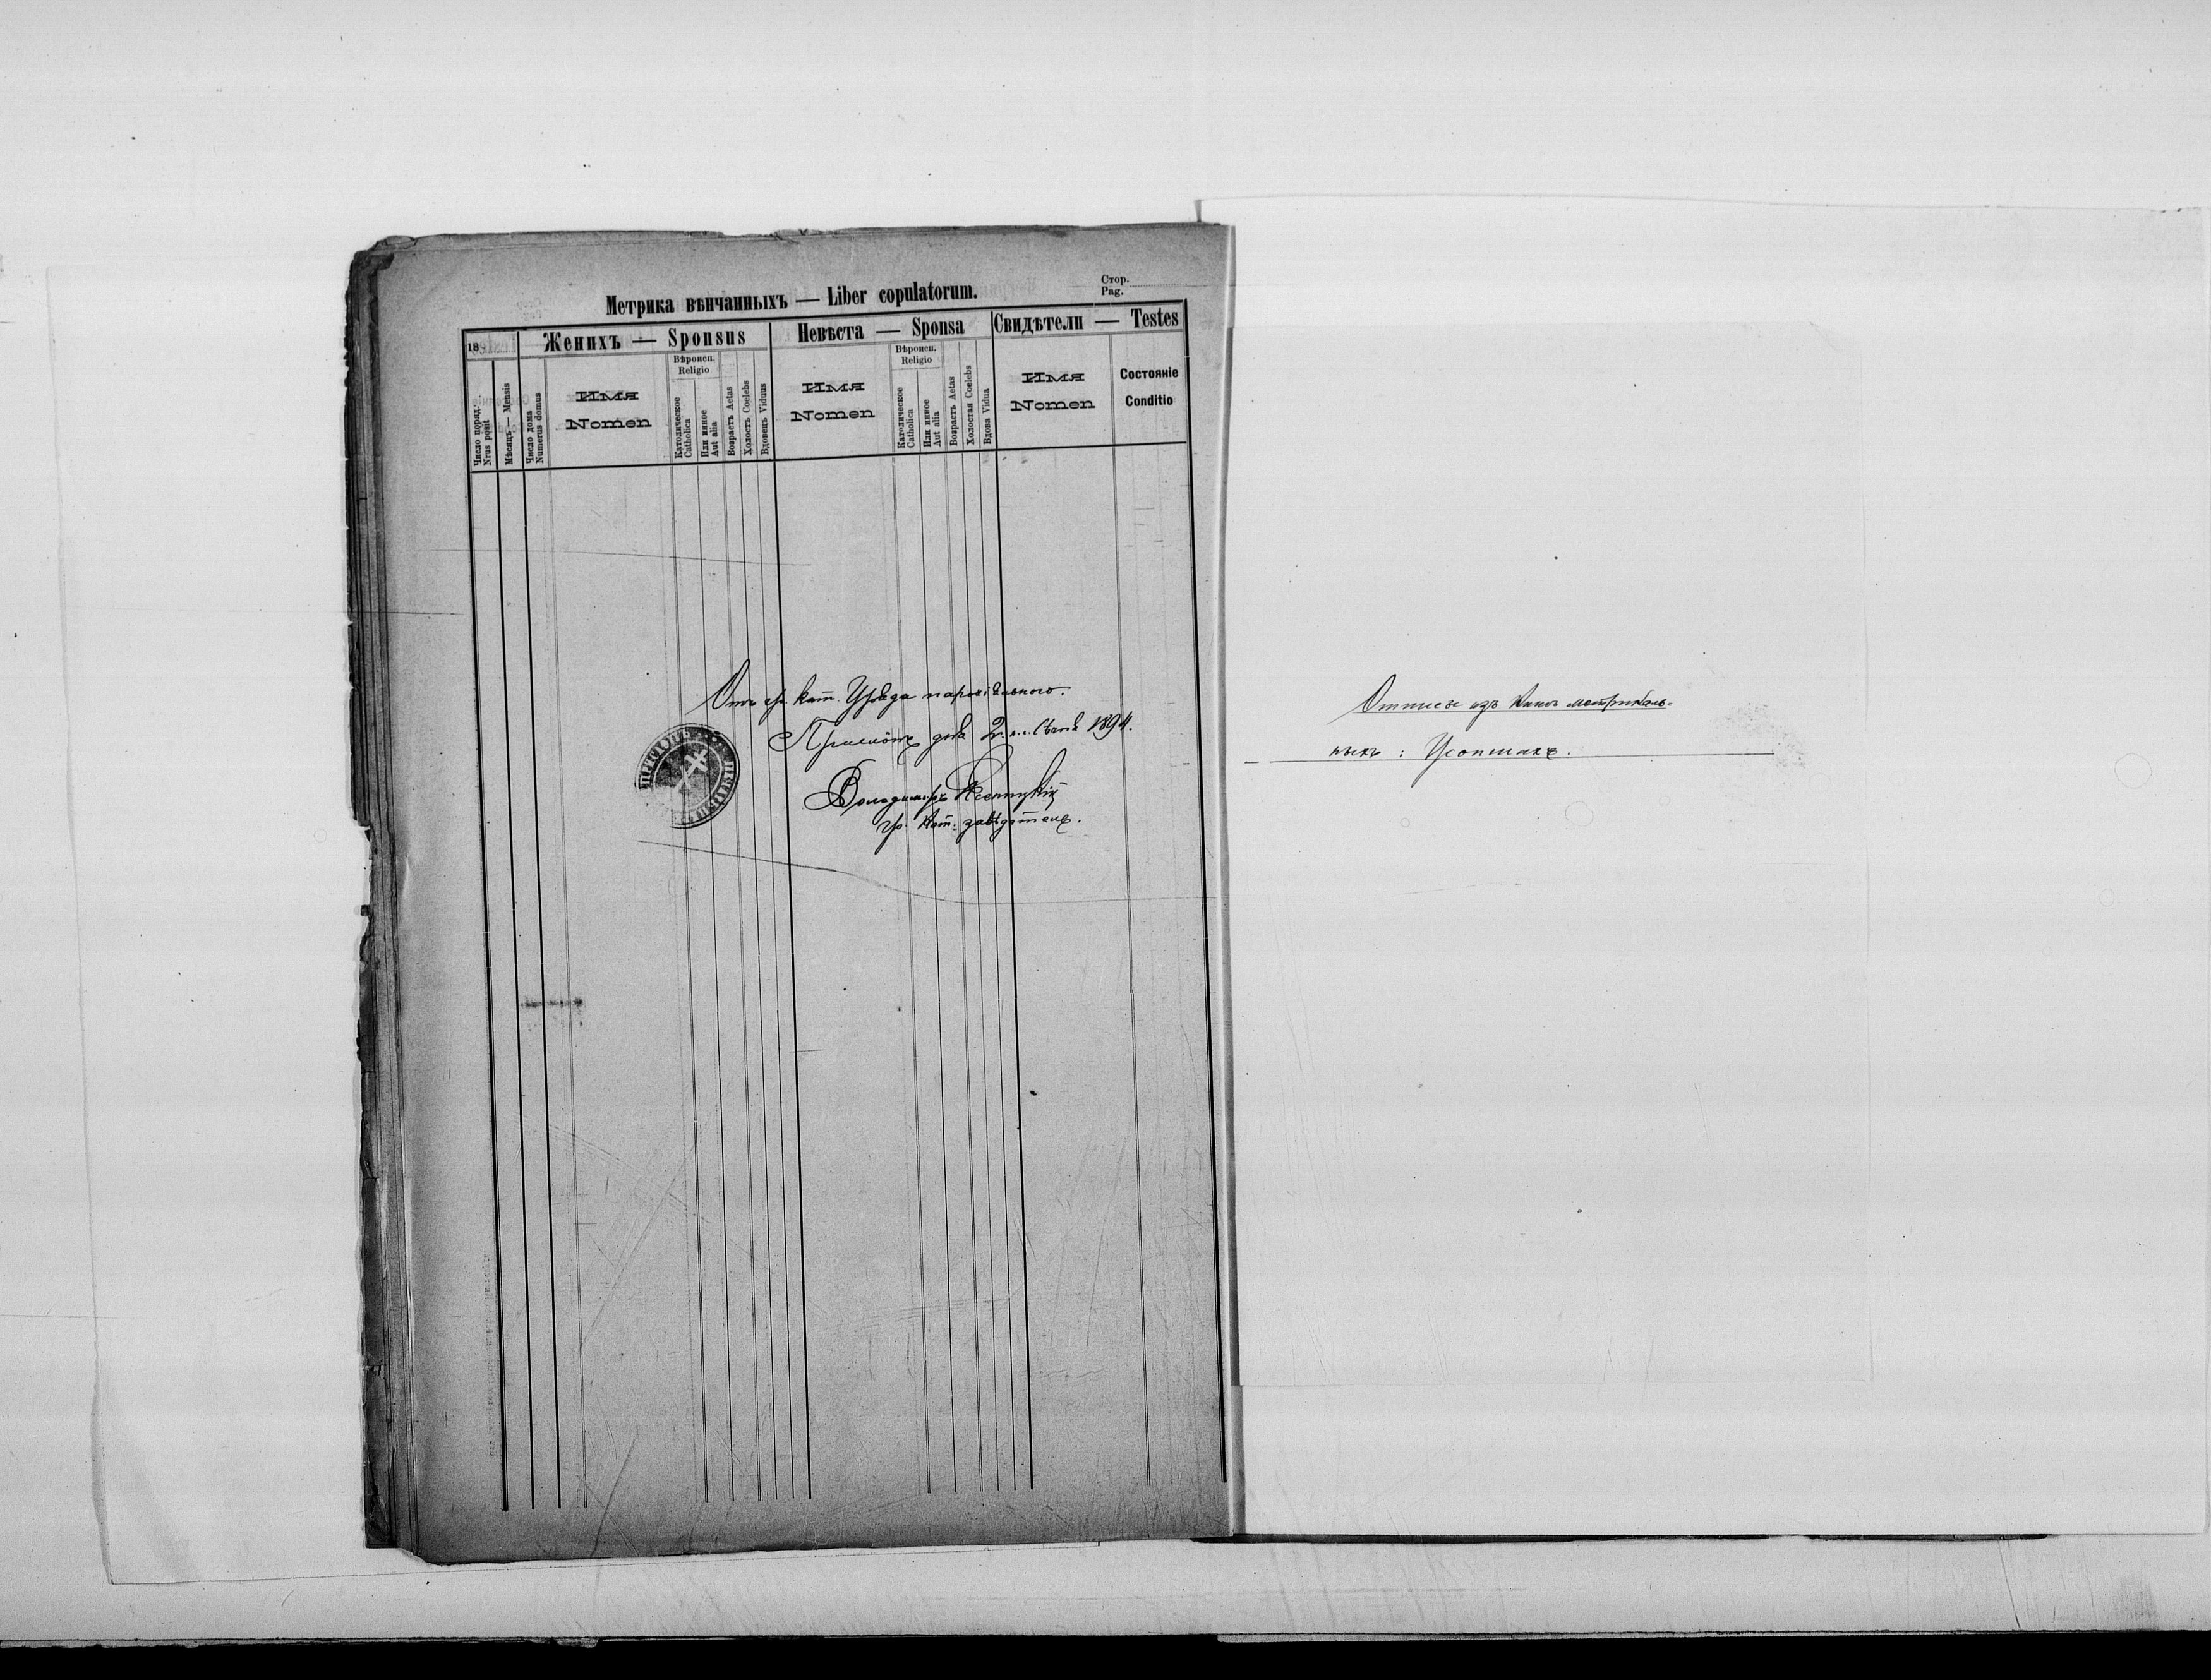 Стор.
Pag.
Метрика вѣнчанныхъ — Liber copulatorum.
18
Женихъ — Sponsus
Невѣста — Sponsa
Свидѣтели — Testes
Число поряд.
Nrus posit
Мѣсяцъ — Mensis
Число дома
Numerus domus
Имя
Nomen
Вѣроисп.
Religio
Католическое
Catholica
Или инное
Aut alia
Возрастъ Aetas
Холостъ Coelebs
Вдовецъ Viduus
Имя
Nomen
Вѣроисп.
Religio
Католическое
Catholica
Или инное
Aut alia
Возрастъ Aetas
Холостая Coelebs
Вдова Vidua
Имя
Nomen
Состояніе
Conditio
Отъ гр. кат. Уряда парохіяльного.
дня 2 1894.
Володимиръ
гр. кат. завѣдатель.
Отписъ изъ Книгъ метрикаль-
ныхъ : Усопшихъ.